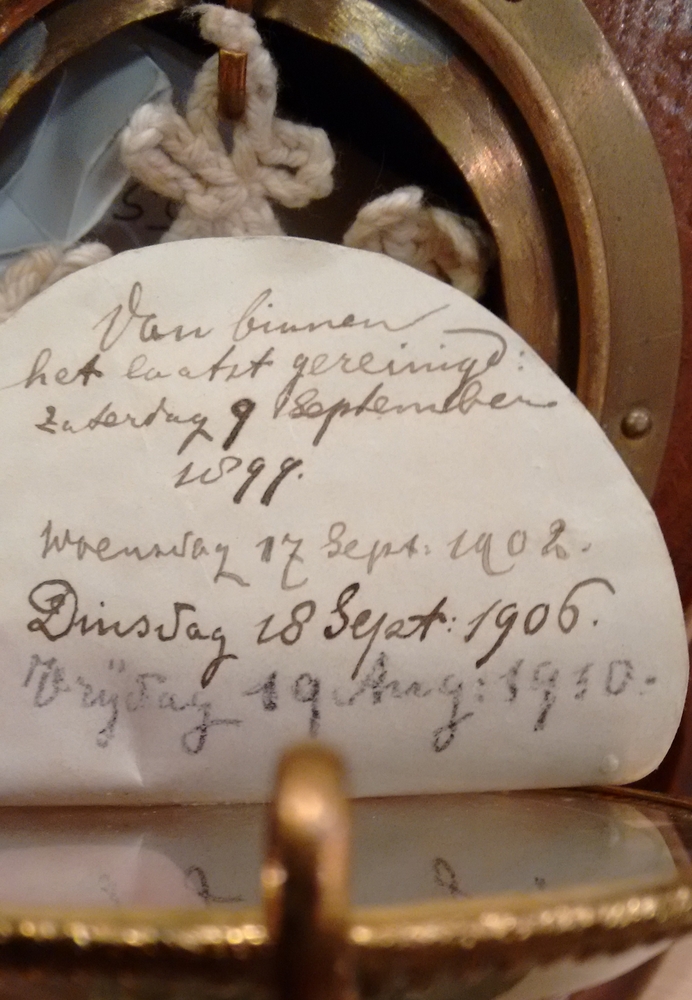 Van binnen
het laatst gereinigd:
Zaterdag 9 September
1899.
Woensdag 17 Sept: 1902.
Dinsdag 18 Sept: 1906.
Vrijdag 19 Aug: 1910.